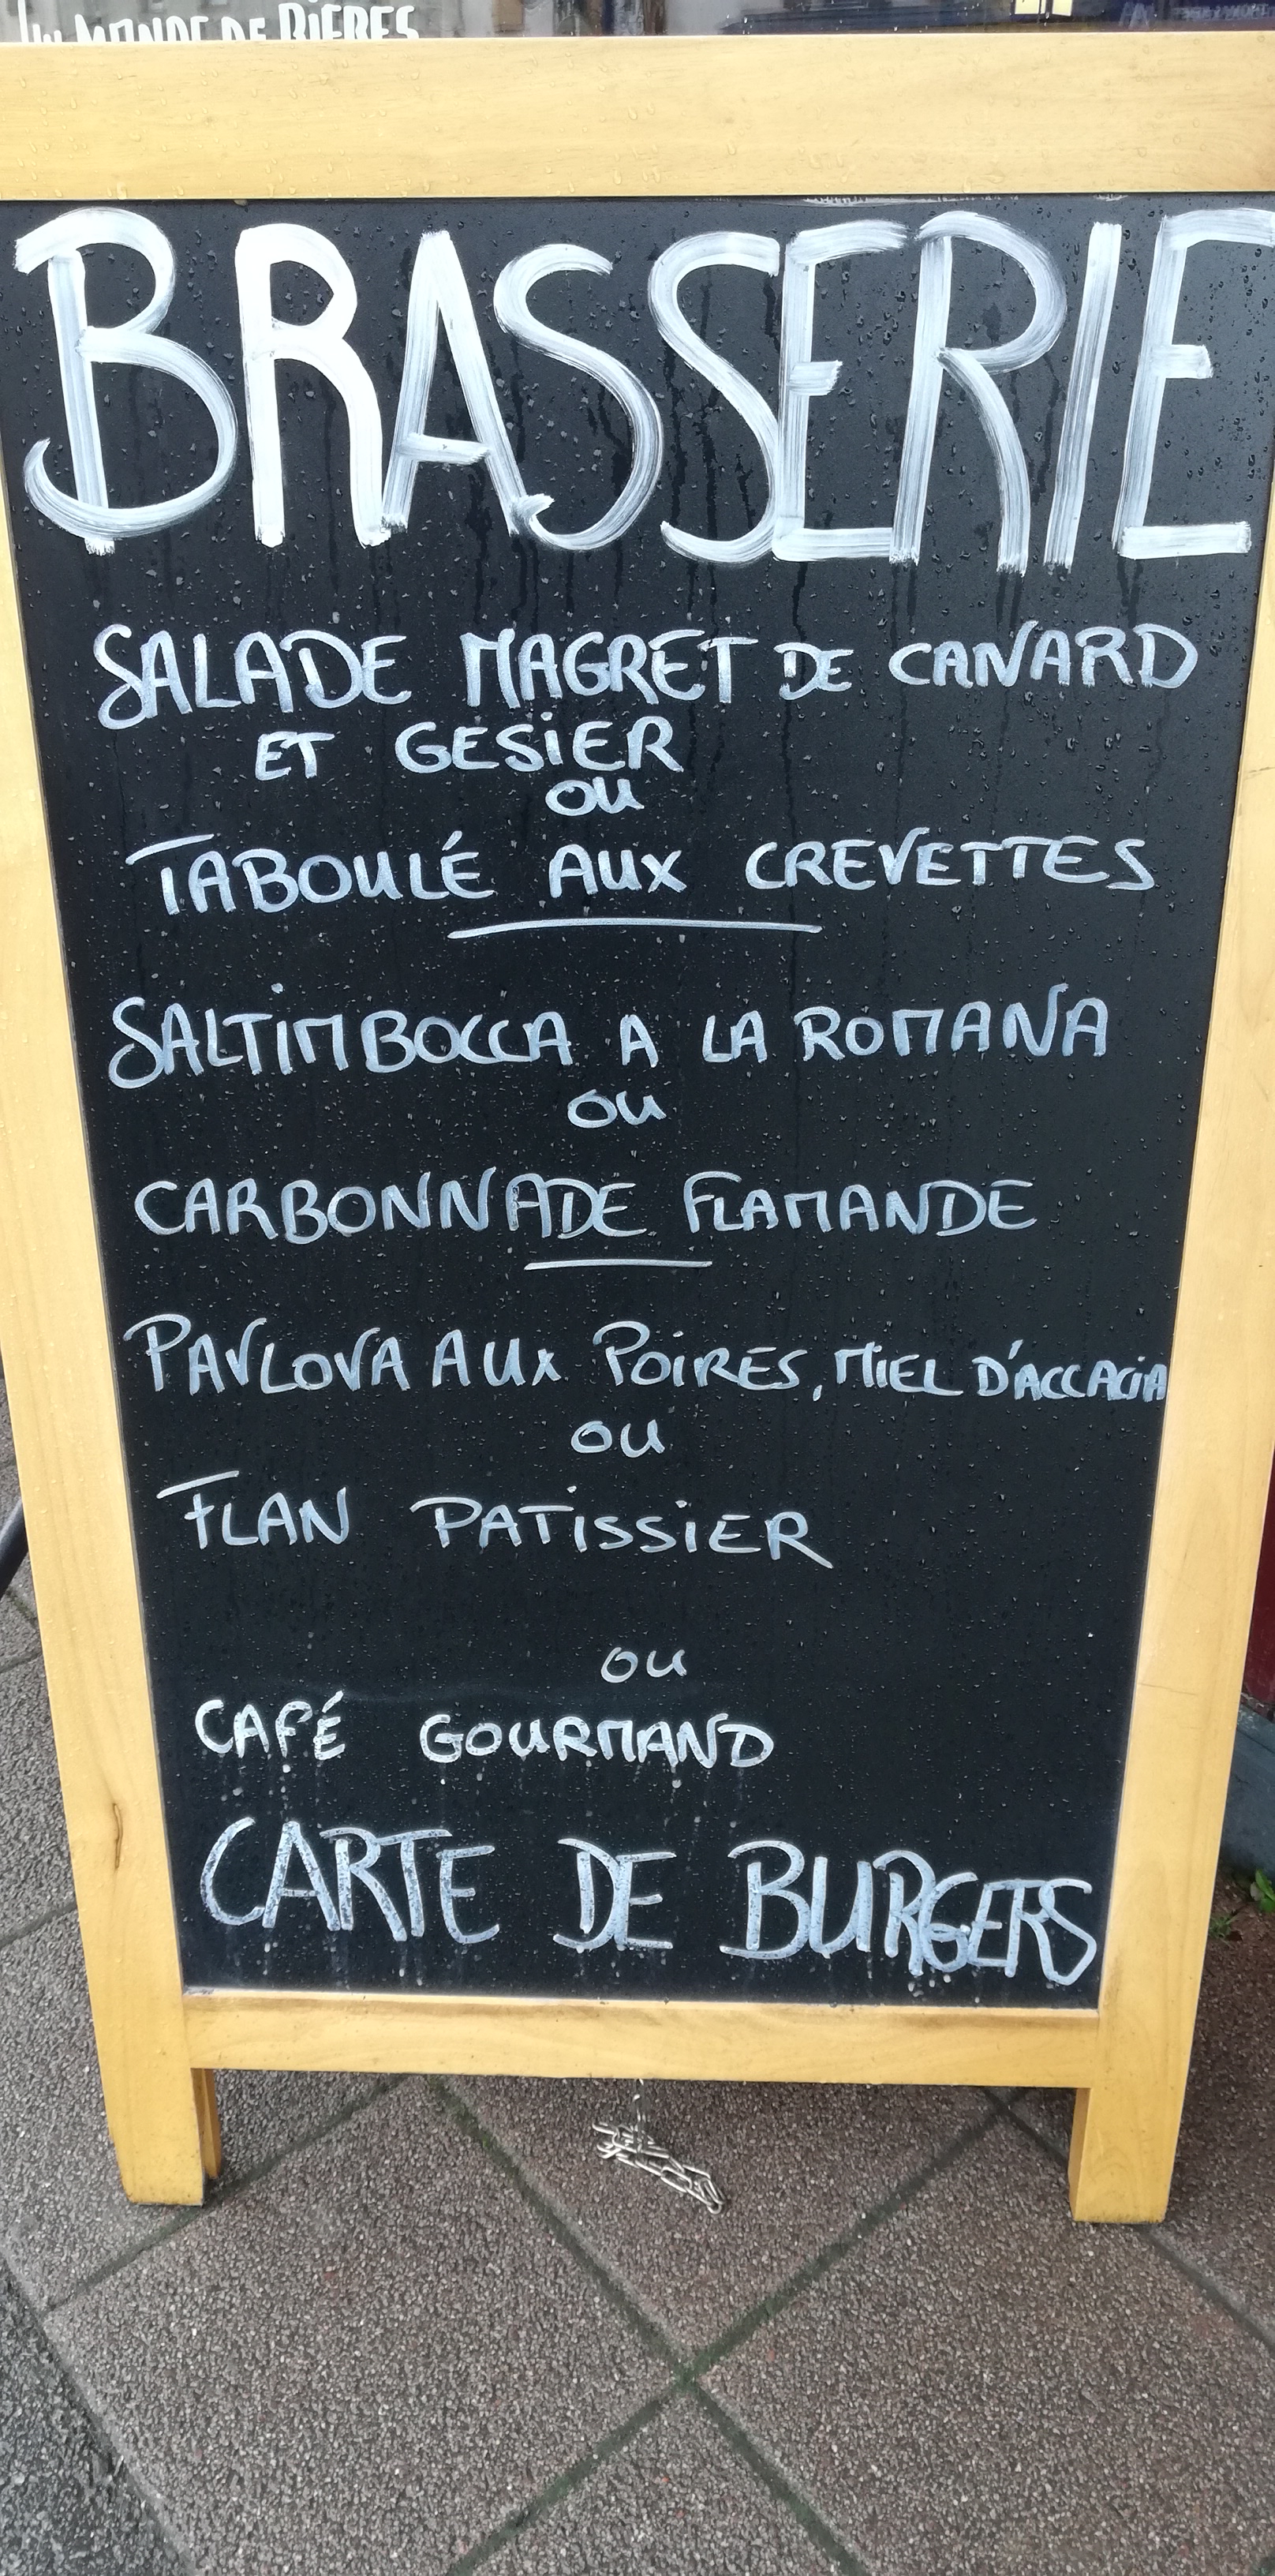 UN MONDE DE BIÈRES
BRASSERIE
SALADE MAGRET DE CANARD
ET GESIER
OU
TABOULÉ AUX CREVETTES
SALTIMBOCCA A LA ROMANA
OU
CARBONNADE FLAMANDE
PAVLOVA AUX POIRES, MIEL D'ACCACIA
OU
FLAN PATISSIER
OU
CAFÉ GOURMAND
CARTE DE BURGERS